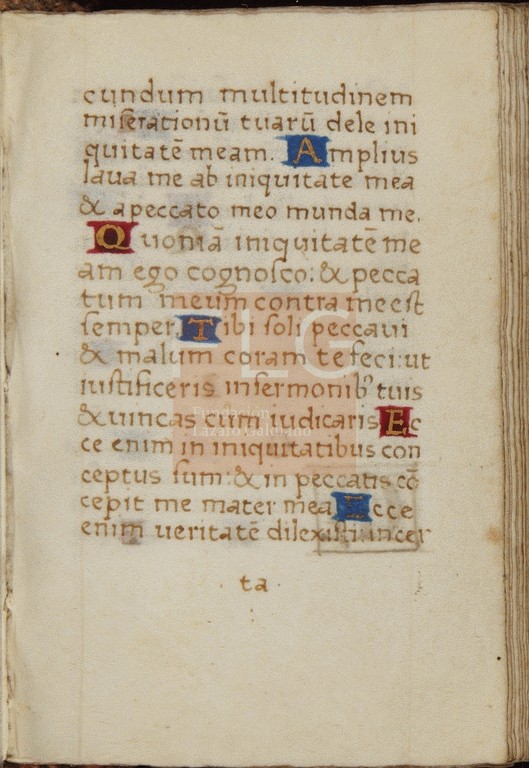 cundum multitudinem
miſerationū tuarū dele ini
quitatē meam. Amplius
laua me ab iniquitate mea
& a peccato meo munda me.
Quoniā iniquitatē me
am ego cognoſco: & pecca
tum meum contra me est
ſemper. Tibi ſoli peccaui
& malum coram te feci: ut
iustificeris in ſermonibꝰ tuis
& uincas cum iudicaris Ec
ce enim in iniquitatibus con
ceptus ſum: & in peccatis cō
cepit me mater mea Ecce
enim ueritatē dilexisti: incer
ta
FLG
Fundación
Lázaro Galdiano